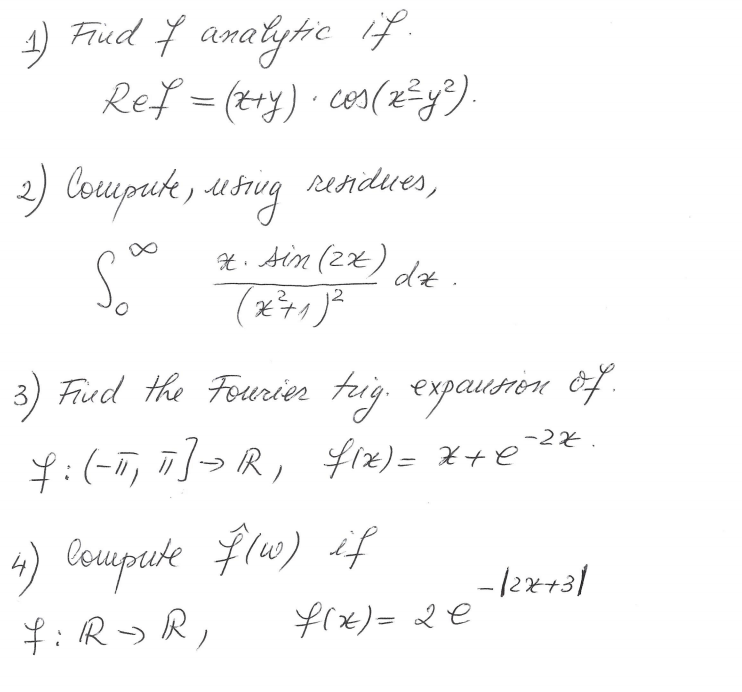 1) Find f analytic if.
Re f = (x+y) · cos(x²-y²).
2) Compute, using residues,
∫₀^∞ x. sin(2x) / (x²+1)² dx.
3) Find the Fourier trig. expansion of.
f: (-π, π] → ℝ, f(x) = x + e^{-2x}.
4) Compute f̂(w) if
f: ℝ → ℝ, f(x) = 2e^{-|2x+3|}